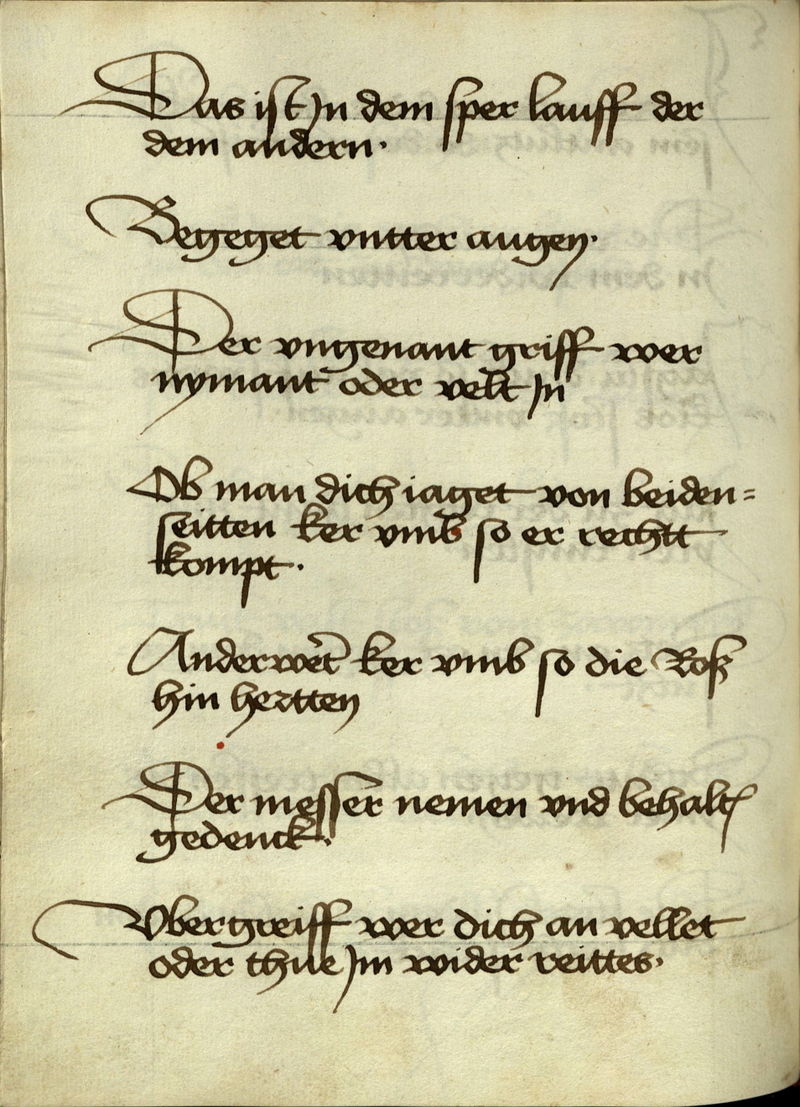 Das ist Jn dem sper lauff der
dem andern·
Begeget vntter augen·
Der vngenant griff wer
nymant oder velt Jn
Ob man dich iaget von beiden=
seitten ker vmb so er rechtt
kompt·
Anderwet ker vmb so die Roß
hin hertten
Der messer nemen vnd behalt
gedenck·
Vbergreiff wer dich an vellet
oder thue Jm wider reittes·